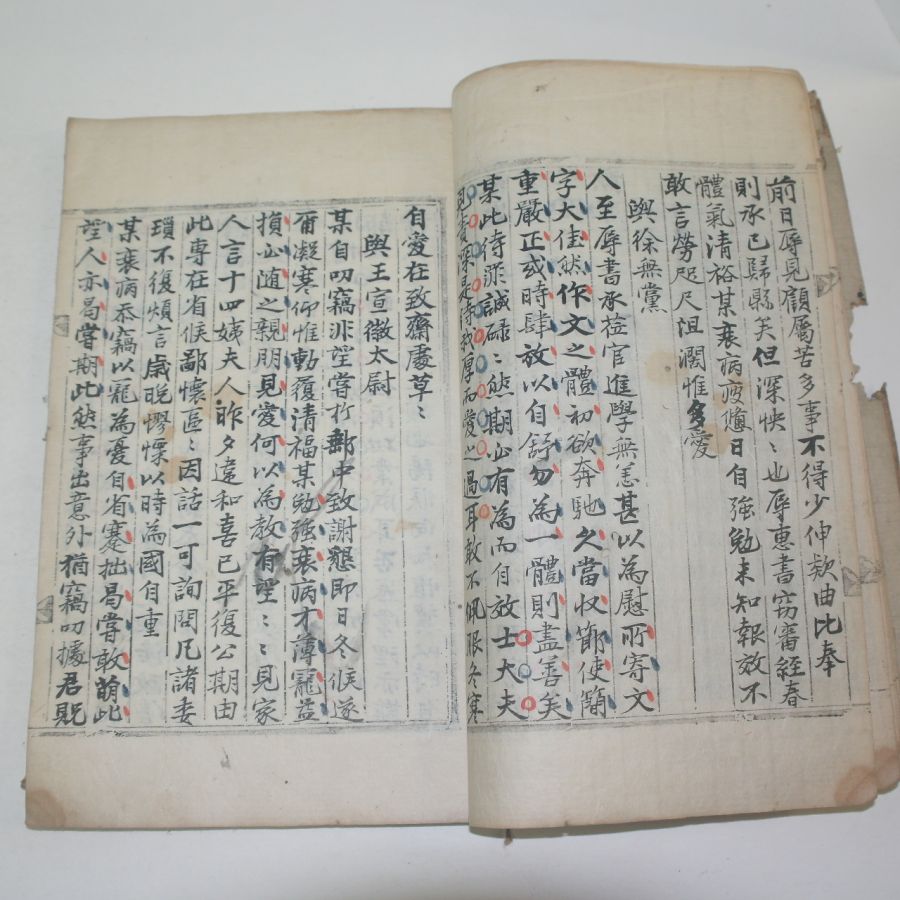 前日辱見顧屬苦多事不得少伸款曲比奉
則承已歸縣矣但深怏〻也辱惠書竊審經春
體氣清裕某衰病疲憊日自強勉未知報效不
敢言勞咫尺沮濶惟多愛
與徐無黨
人至辱書承莅官進學無恙甚以為慰所寄文
字大佳然作文之體初欲奔馳久當收節使簡
重嚴正或時肆放以自舒勿為一體則盡善矣
某此待罪誠碌〻然期必有為而自效士大夫
見責深是待我厚而愛之過耳敢不佩服冬寒
自愛在致齋處草〻
與王宣徽太尉
某自叨竊非望嘗於郵中致謝懇即日冬候遂
爾凝寒仰惟動履清福某勉強衰病才薄寵益
損必随之親朋見愛何以為教有望〻〻見家
人言十四姨夫人昨夕違和喜已平復公期由
此專在省候鄙懷區〻因話一可詢問凡諸委
瑣不復煩言歲晚憀慄以時為國自重
某衰病忝竊以寵為憂自省蹇拙曷嘗敢萌此
望人亦曷嘗期此然事出意外猶竊叨據君貺